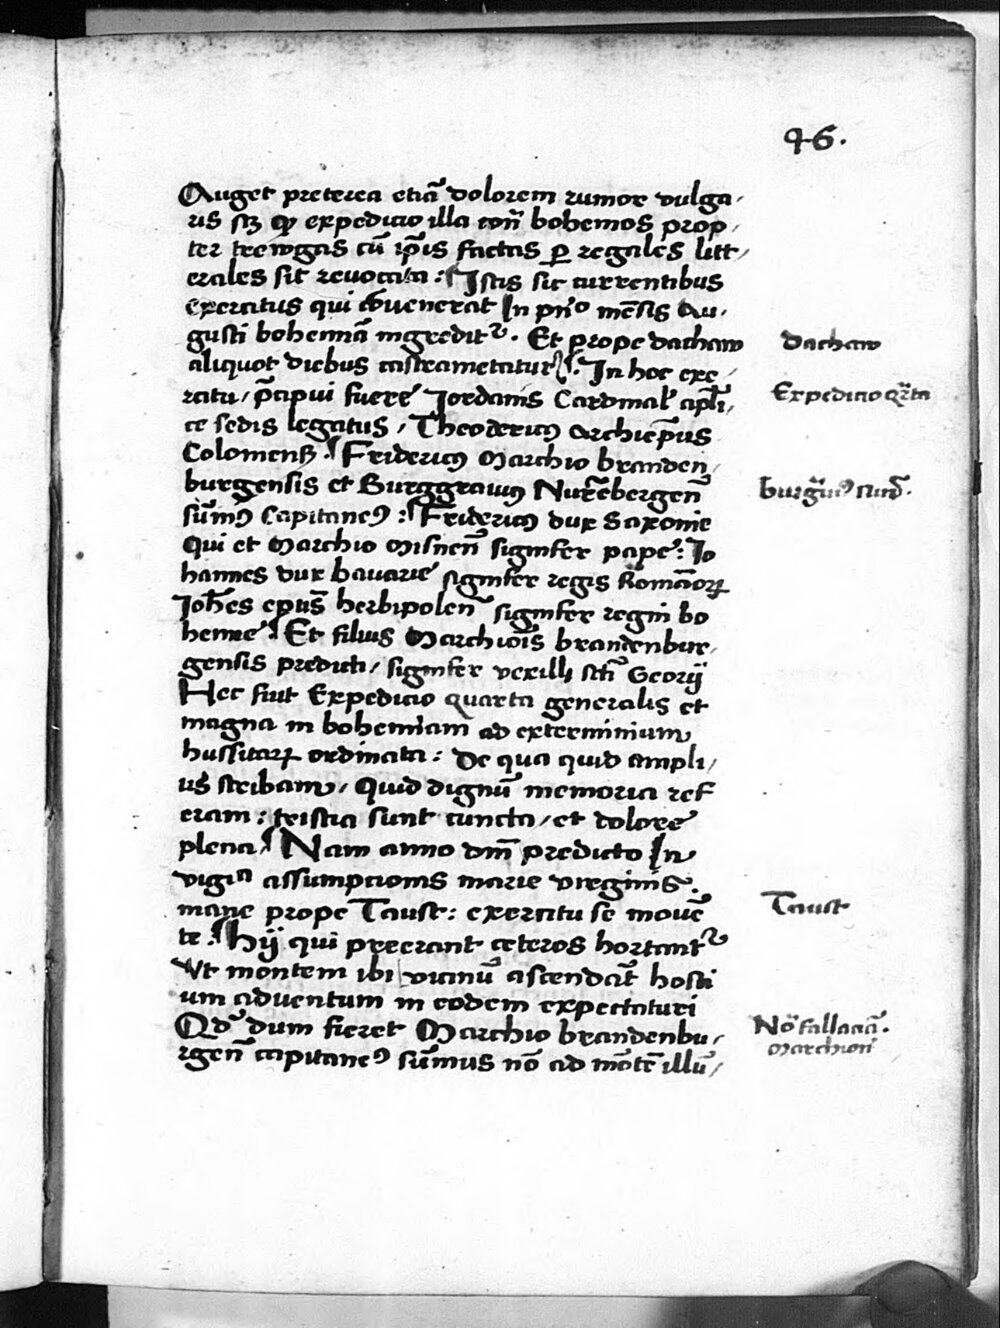 46.
Auget preterea etiā dolorem rumor vulga,
ris sꝫ qꝫ expedicio illa cōtra bohemos prop,
ter trewgas cū ip̄is factas ꝑ regales litt,
erales sit reuocata : Istis sic currentibus
exercitus qui cōuenerat In prīo mēsis Au,
gusti bohemiā ingredit᷑. Et prope dachaw
aliquot diebus castrametatur. In hoc exe,
rcitu, prīcipui fuere Jordanis Cardinal' apl̄i,
ce sedis legatus, Theodericꝰ Archiep̄us
Coloniensꝭ. Fridericꝰ Marchio branden,
burgensis et Burggrauiꝰ Nurēbergen̄
sūmꝰ Capitaneꝰ : Fridericꝰ dux Saxonie
Qui et Marchio Misnen̄ signifer pape : Jo
hannes dux bauarie signifer regis Romāoꝝ
Joh̄es ep̄us herbipolen̄ signifer regni bo
hemie. Et filius Marchiōis brandenbur,
gensis predicti, signifer vexilli sct̄i Georij
Hec fiut Expedicio quarta generalis et
magna in bohemiam ad exterminium
hussitaꝝ ordinata : De qua quid ampli,
us scribam, Quid dignū memoria ref
eram : tristia sunt cuncta, et dolore
plena. Nam anno dn̄i predicto In
vigīa assumpcionis marie virginis.
mane prope Taust : exercitu se mouē
te. Hij qui preerant ceteros hortant᷑
Vt montem ibi vicinū ascendāt hosti
um aduentum in eodem expectaturi
Qd̄ dum fieret Marchio brandenbu,
rgen̄ capitaneꝰ sūmus nō ad mōtē illū,
dachaw
Expedicio q̄rta
burḡuiꝰ nurē.
Taust
No᷑ fallaciā.
Marchion̄